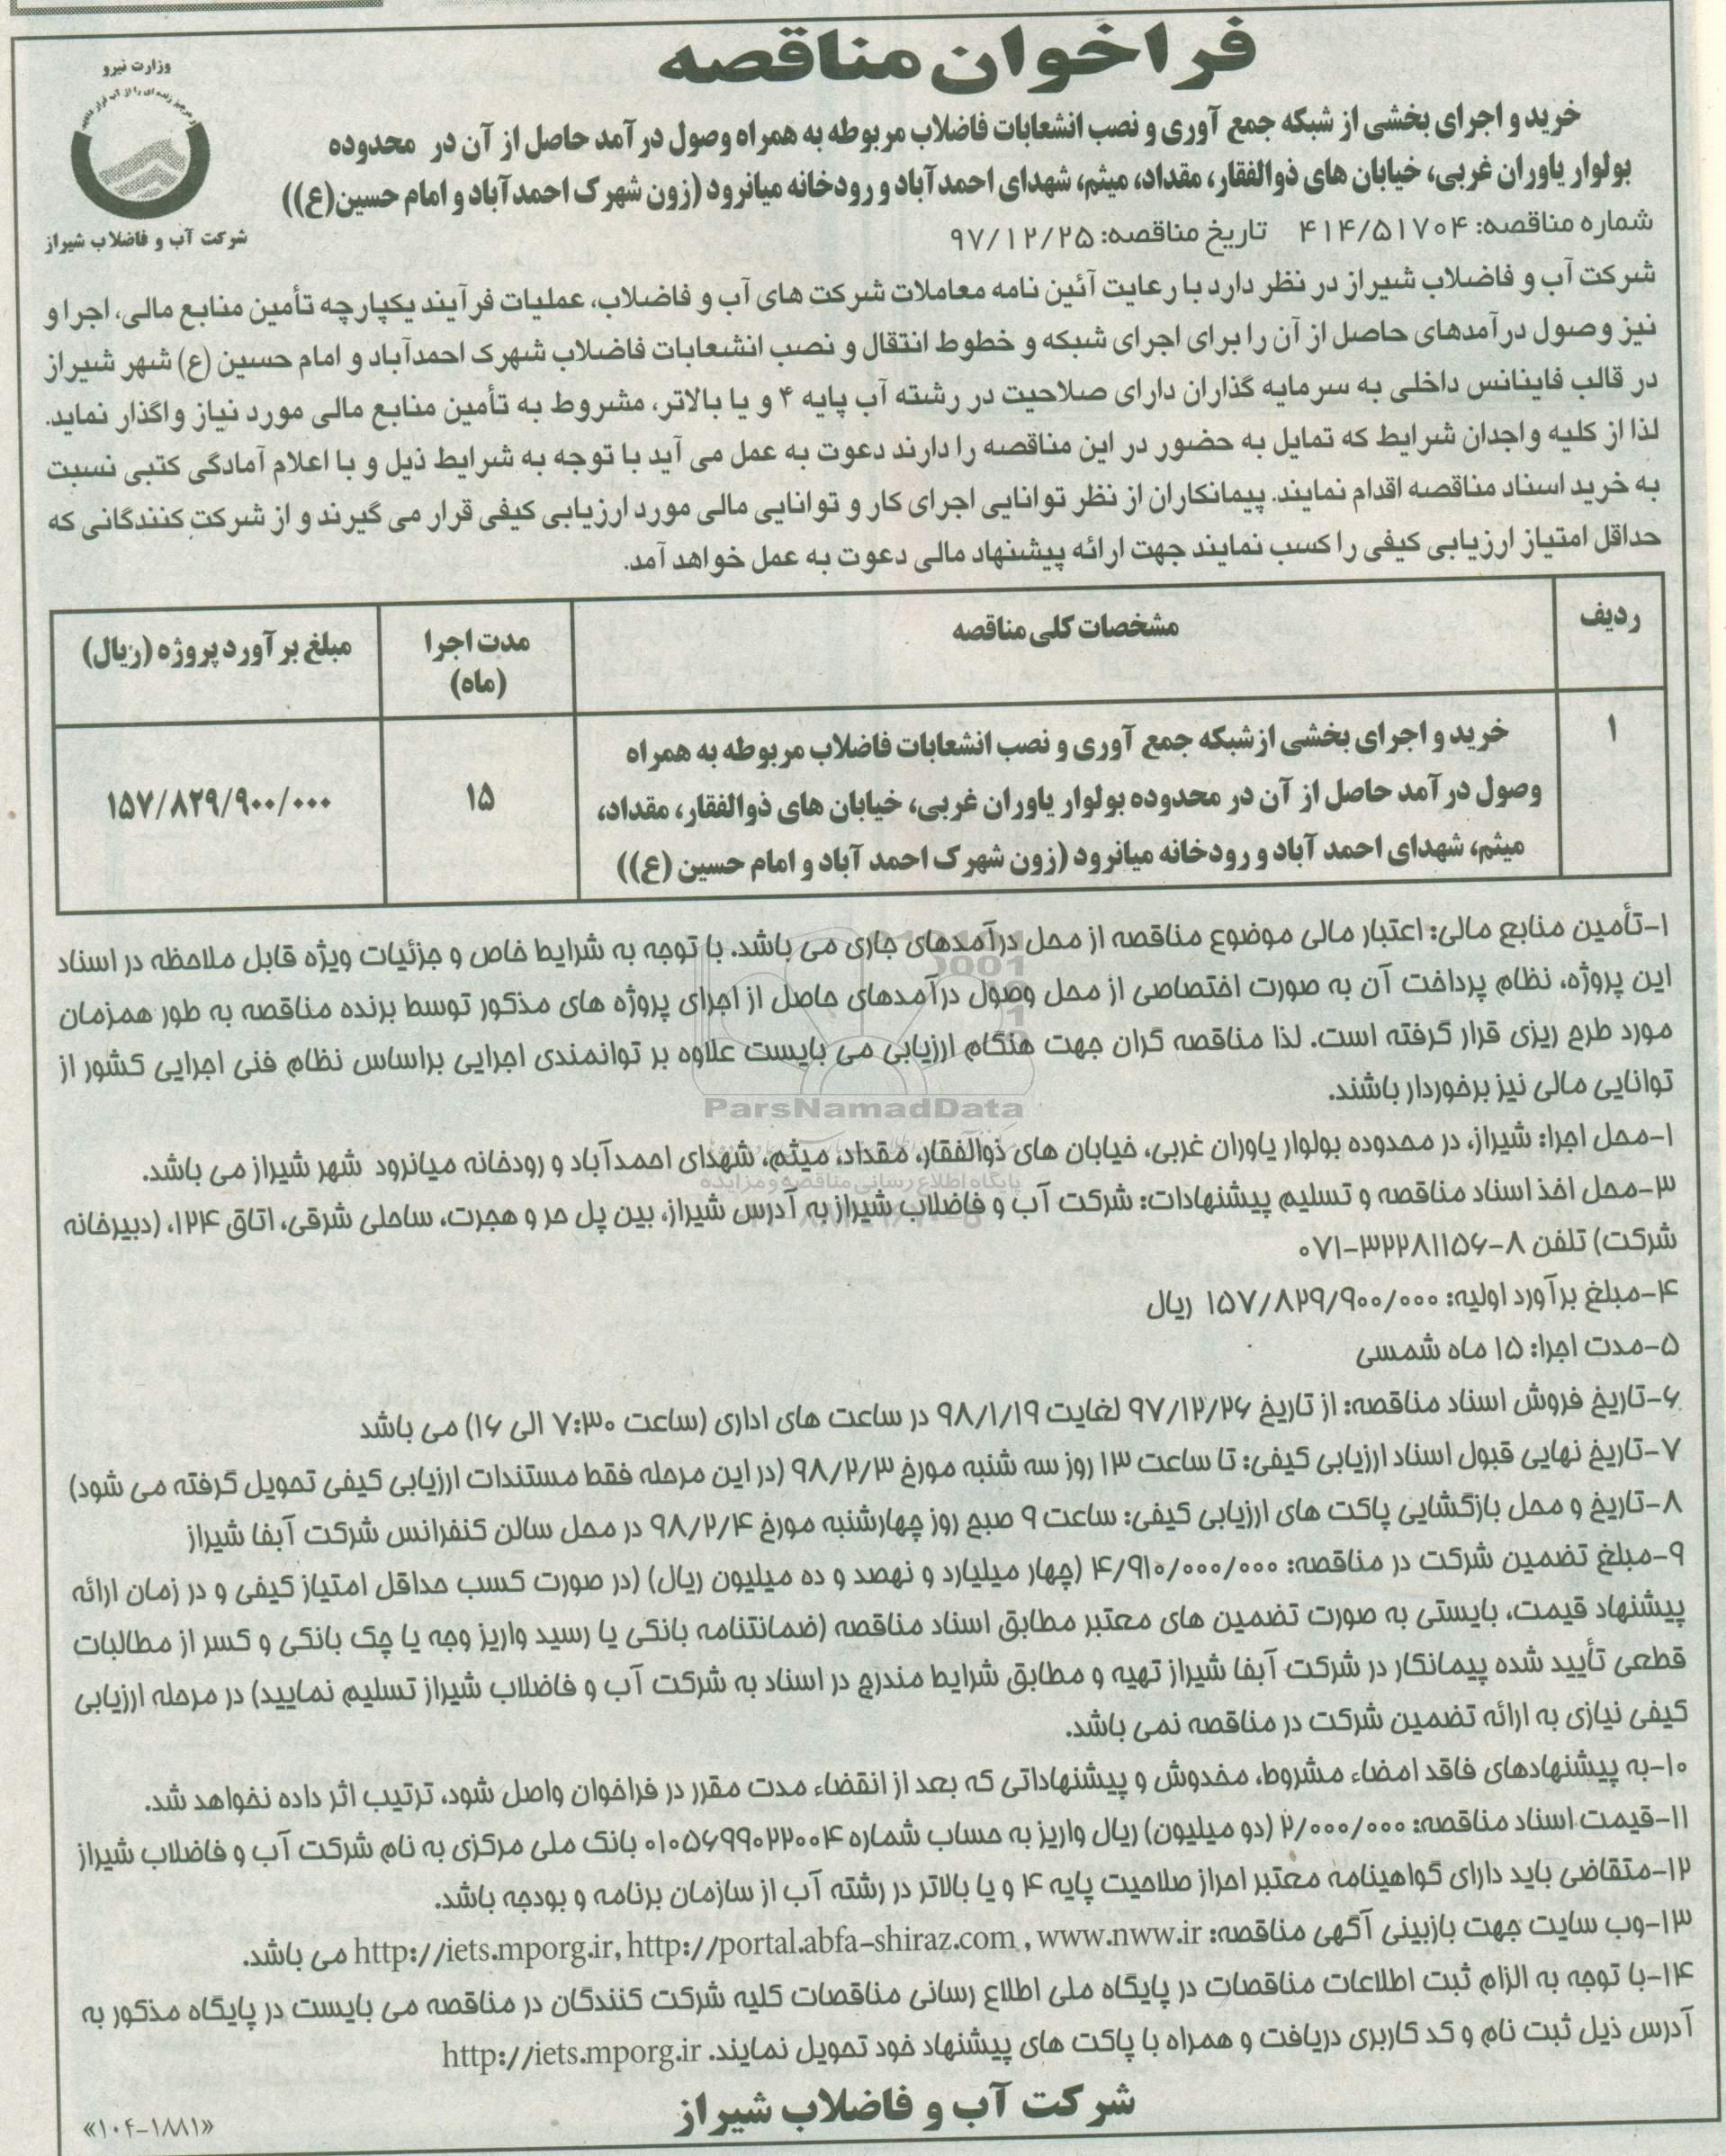 فراخوان مناقصه
وزارت نیرو
شرکت آب و فاضلاب شیراز
خرید و اجرای بخشی از شبکه جمع آوری و نصب انشعابات فاضلاب مربوطه به همراه وصول درآمد حاصل از آن در محدوده
بولوار یاوران غربی، خیابان های ذوالفقار، مقداد، میثم، شهدای احمدآباد و رودخانه میانرود (زون شهرک احمدآباد و امام حسین(ع))
شماره مناقصه: ۴۱۴/۵۱۷۰۴ تاریخ مناقصه: ۹۷/۱۲/۲۵
شرکت آب و فاضلاب شیراز در نظر دارد با رعایت آئین نامه معاملات شرکت های آب و فاضلاب، عملیات فرآیند یکپارچه تأمین منابع مالی، اجرا و
نیز وصول درآمدهای حاصل از آن را برای اجرای شبکه و خطوط انتقال و نصب انشعابات فاضلاب شهرک احمدآباد و امام حسین (ع) شهر شیراز
در قالب فاینانس داخلی به سرمایه گذاران دارای صلاحیت در رشته آب پایه ۴ و یا بالاتر، مشروط به تأمین منابع مالی مورد نیاز واگذار نماید.
لذا از کلیه واجدان شرایط که تمایل به حضور در این مناقصه را دارند دعوت به عمل می آید با توجه به شرایط ذیل و با اعلام آمادگی کتبی نسبت
به خرید اسناد مناقصه اقدام نمایند. پیمانکاران از نظر توانایی اجرای کار و توانایی مالی مورد ارزیابی کیفی قرار می گیرند و از شرکت کنندگانی که
حداقل امتیاز ارزیابی کیفی را کسب نمایند جهت ارائه پیشنهاد مالی دعوت به عمل خواهد آمد.
ردیف
مشخصات کلی مناقصه
مدت اجرا
(ماه)
مبلغ برآورد پروژه (ریال)
۱
خرید و اجرای بخشی از شبکه جمع آوری و نصب انشعابات فاضلاب مربوطه به همراه
وصول درآمد حاصل از آن در محدوده بولوار یاوران غربی، خیابان های ذوالفقار، مقداد،
میثم، شهدای احمد آباد و رودخانه میانرود (زون شهرک احمد آباد و امام حسین (ع))
۱۵
۱۵۷/۸۲۹/۹۰۰/۰۰۰
۱-تأمین منابع مالی: اعتبار مالی موضوع مناقصه از محل درآمدهای جاری می باشد. با توجه به شرایط خاص و جزئیات ویژه قابل ملاحظه در اسناد
این پروژه، نظام پرداخت آن به صورت اختصاصی از محل وصول درآمدهای حاصل از اجرای پروژه های مذکور توسط برنده مناقصه به طور همزمان
مورد طرح ریزی قرار گرفته است. لذا مناقصه گران جهت هنگام ارزیابی می بایست علاوه بر توانمندی اجرایی براساس نظام فنی اجرایی کشور از
توانایی مالی نیز برخوردار باشند.
ParsNamadData
۱-محل اجرا: شیراز، در محدوده بولوار یاوران غربی، خیابان های ذوالفقار، مقداد، میثم، شهدای احمدآباد و رودخانه میانرود شهر شیراز می باشد.
پایگاه اطلاع رسانی مناقصه و مزایده
۳-محل اخذ اسناد مناقصه و تسلیم پیشنهادات: شرکت آب و فاضلاب شیراز به آدرس شیراز، بین پل حر و هجرت، ساحلی شرقی، اتاق ۱۲۴، (دبیرخانه
شرکت) تلفن ۸-۳۲۲۸۱۱۵۶-۰۷۱
۴-مبلغ برآورد اولیه: ۱۵۷/۸۲۹/۹۰۰/۰۰۰ ریال
۵-مدت اجرا: ۱۵ ماه شمسی
۶-تاریخ فروش اسناد مناقصه: از تاریخ ۹۷/۱۲/۲۶ لغایت ۹۸/۱/۱۹ در ساعت های اداری (ساعت ۷:۳۰ الی ۱۶) می باشد
۷-تاریخ نهایی قبول اسناد ارزیابی کیفی: تا ساعت ۱۳ روز سه شنبه مورخ ۹۸/۲/۳ (در این مرحله فقط مستندات ارزیابی کیفی تحویل گرفته می شود)
۸-تاریخ و محل بازگشایی پاکت های ارزیابی کیفی: ساعت ۹ صبح روز چهارشنبه مورخ ۹۸/۲/۴ در محل سالن کنفرانس شرکت آبفا شیراز
۹-مبلغ تضمین شرکت در مناقصه: ۴/۹۱۰/۰۰۰/۰۰۰ (چهار میلیارد و نهصد و ده میلیون ریال) (در صورت کسب حداقل امتیاز کیفی و در زمان ارائه
پیشنهاد قیمت، بایستی به صورت تضمین های معتبر مطابق اسناد مناقصه (ضمانتنامه بانکی یا رسید واریز وجه یا چک بانکی و کسر از مطالبات
قطعی تأیید شده پیمانکار در شرکت آبفا شیراز تهیه و مطابق شرایط مندرج در اسناد به شرکت آب و فاضلاب شیراز تسلیم نمایید) در مرحله ارزیابی
کیفی نیازی به ارائه تضمین شرکت در مناقصه نمی باشد.
۱۰-به پیشنهادهای فاقد امضاء مشروط، مخدوش و پیشنهاداتی که بعد از انقضاء مدت مقرر در فراخوان واصل شود، ترتیب اثر داده نخواهد شد.
۱۱-قیمت اسناد مناقصه: ۲/۰۰۰/۰۰۰ (دو میلیون) ریال واریز به حساب شماره ۰۱۰۵۶۹۹۰۲۲۰۰۴ بانک ملی مرکزی به نام شرکت آب و فاضلاب شیراز
۱۲-متقاضی باید دارای گواهینامه معتبر احراز صلاحیت پایه ۴ و یا بالاتر در رشته آب از سازمان برنامه و بودجه باشد.
۱۳-وب سایت جهت بازبینی آگهی مناقصه: http://iets.mporg.ir, http://portal.abfa-shiraz.com , www.nww.ir می باشد.
۱۴-با توجه به الزام ثبت اطلاعات مناقصات در پایگاه ملی اطلاع رسانی مناقصات کلیه شرکت کنندگان در مناقصه می بایست در پایگاه مذکور به
آدرس ذیل ثبت نام و کد کاربری دریافت و همراه با پاکت های پیشنهاد خود تحویل نمایند. http://iets.mporg.ir
شرکت آب و فاضلاب شیراز
«۱۰۴-۱۸۸۱»